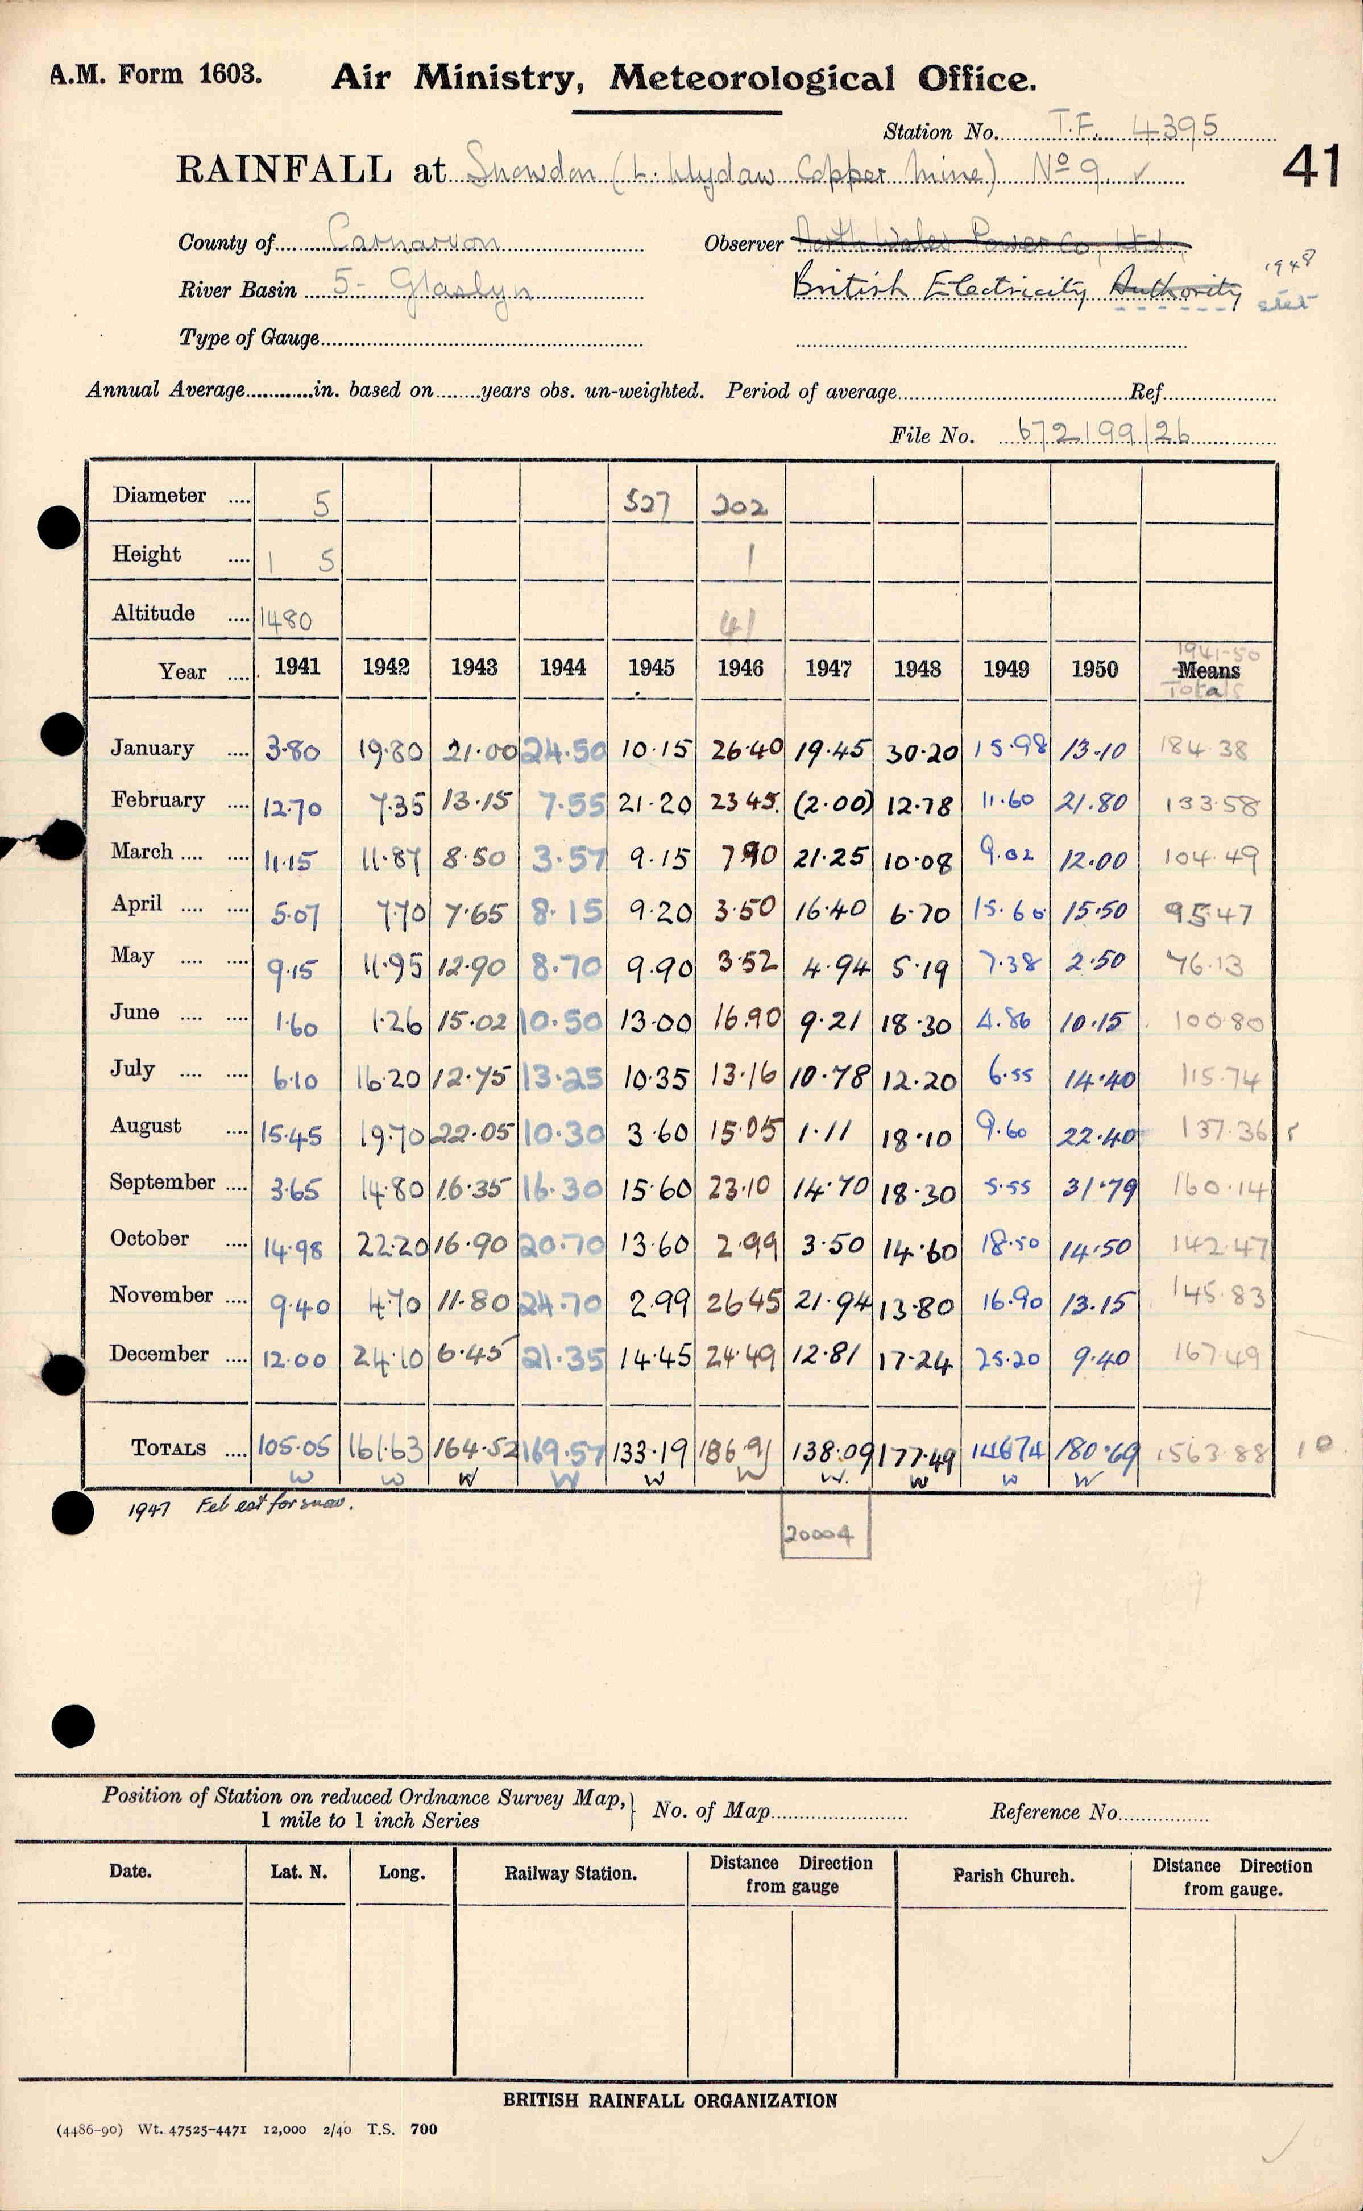 A.M. Form 1603. Air Ministry, Meteorological Office.
Station No. T.F. 4395
41
RAINFALL at Snowdon (L. Llydaw Copper Mine) No 9. ✓
County of Carnarvon Observer North Wales Power Co, Ltd.
River Basin 5- Glaslyn British Electricity Authority 1948 stet
Type of Gauge
Annual Average in. based on years obs. un-weighted. Period of average Ref.
File No. 672199/26
Diameter 5 527 202
Height 1 5 1
Altitude 1480 41
1941-50
Year 1941 1942 1943 1944 1945 1946 1947 1948 1949 1950 Means
Totals
January 3.80 19.80 21.00 24.50 10.15 26.40 19.45 30.20 15.98 13.10 184.38
February 12.70 7.35 13.15 7.55 21.20 23 45 (2.00) 12.78 11.60 21.80 133.58
March 11.15 11.87 8.50 3.57 9.15 7.90 21.25 10.08 9.02 12.00 104.49
April 5.07 7.70 7.65 8.15 9.20 3.50 16.40 6.70 15.60 15.50 95.47
May 9.15 11.95 12.90 8.70 9.90 3.52 4.94 5.19 7.38 2.50 76.13
June 1.60 1.26 15.02 10.50 13.00 16.90 9.21 18.30 4.86 10.15 100.80
July 6.10 16.20 12.75 13.25 10.35 13.16 10.78 12.20 6.55 14.40 115.74
August 15.45 19.70 22.05 10.30 3.60 15.05 1.11 18.10 9.60 22.40 137.36
September 3.65 14.80 16.35 16.30 15.60 23.10 14.70 18.30 5.55 31.79 160.14
October 14.98 22.20 16.90 20.70 13.60 2.99 3.50 14.60 18.50 14.50 142.47
November 9.40 4.70 11.80 24.70 2.99 26 45 21.94 13.80 16.90 13.15 145.83
December 12.00 24.10 6.45 21.35 14.45 24.49 12.81 17.24 25.20 9.40 167.49
TOTALS 105.05 161.63 164.52 169.57 133.19 186.91 138.09 177.49 146.74 180.69 1563.88 10
w w w w w w w. w w w
1947 Feb est for snow.
20004
Position of Station on reduced Ordnance Survey Map, No. of Map Reference No.
1 mile to 1 inch Series
Date. Lat. N. Long. Railway Station. Distance Direction from gauge Parish Church. Distance Direction from gauge.
BRITISH RAINFALL ORGANIZATION
(4486-90) Wt. 47525-4471 12,000 2/40 T.S. 700